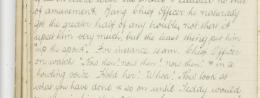 of amusement. Being Chief Officer he naturally
got the greater half of any trouble, not that it
upset him very much, but the least thing put him
"up the spout". For instance team. Chief Officer
on watch "Now then! now then! now then!" in a
howling voice "Hold her! Whoa! Now look at
what you have done & so on until Teddy would